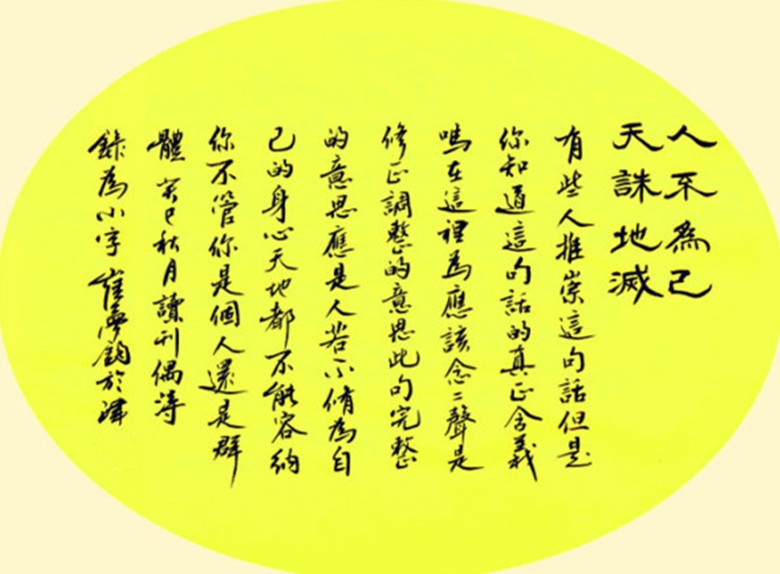 人不為己
天誅地滅
有些人推崇這句話但是
你知道這句話的真正含義
嗎在這裡為應該念二聲是
修正調整的意思此句完整
的意思應是人若不脩為自
己的身心天地都不能容納
你不管你是個人還是群
體 癸巳秋月讀刊偶得
錄為小字 崔 鈞於津